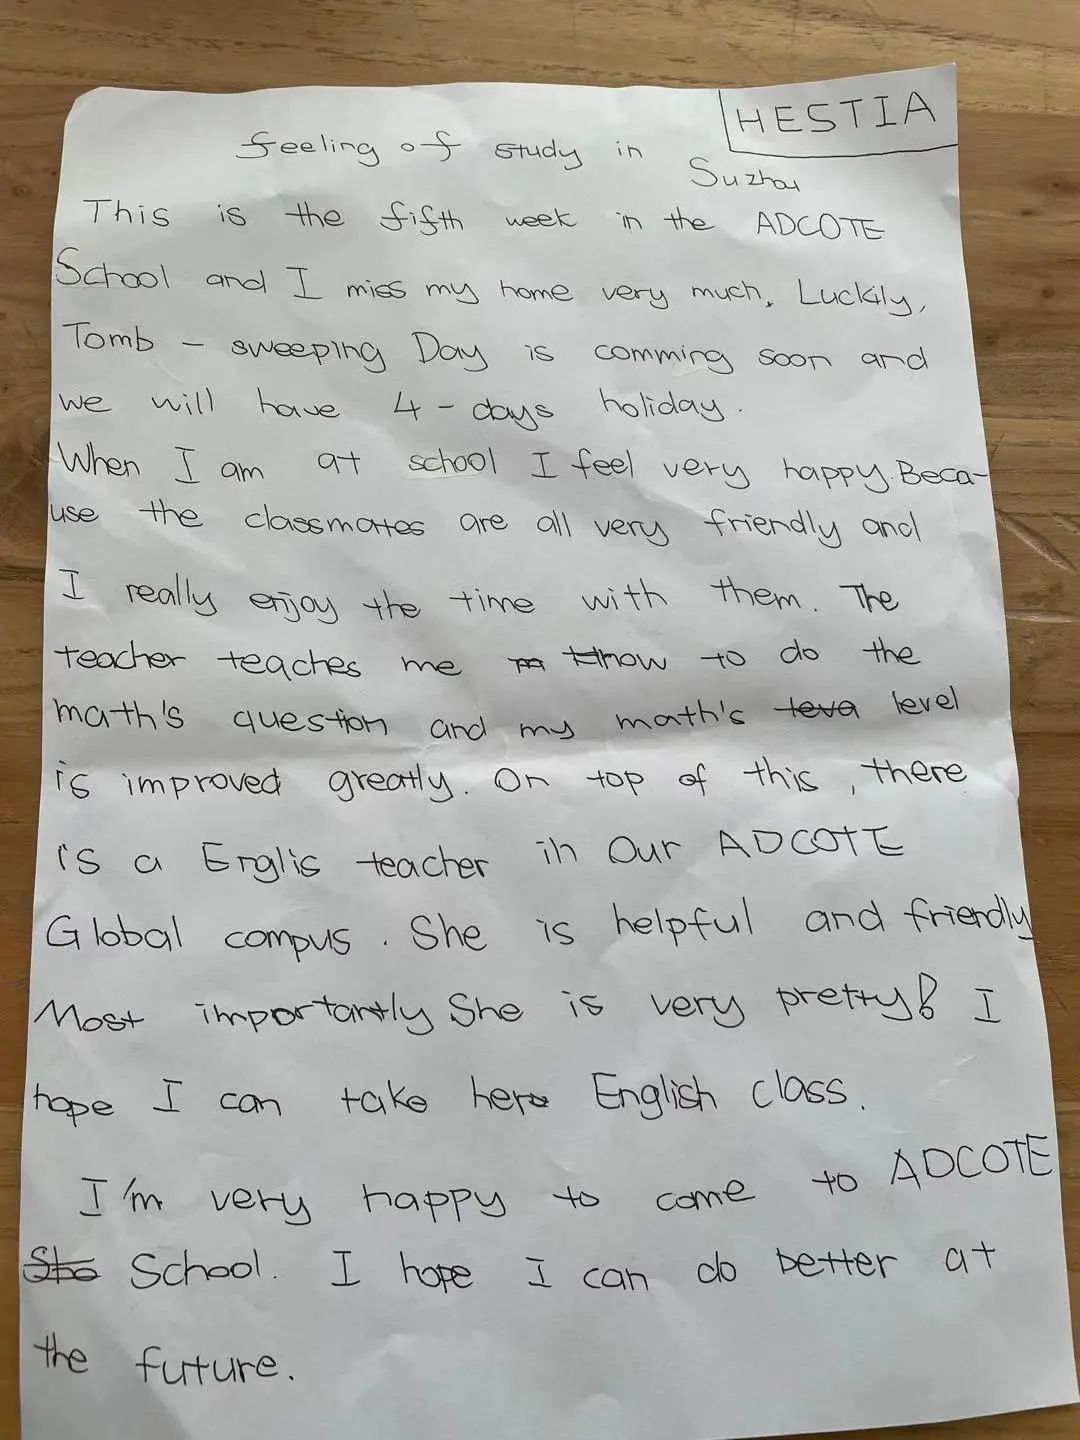 HESTIA
feeling of study in Suzhou
This is the fifth week in the ADCOTE
School and I miss my home very much. Luckily,
Tomb - sweeping Day is comming soon and
we will have 4 - days holiday.
When I am at school I feel very happy. Beca-
use the classmates are all very friendly and
I really enjoy the time with them. The
teacher teaches me how to do the
math's question and my math's level
is improved greatly. On top of this, there
is a Englis teacher in Our ADCOTE
Global campus. She is helpful and friendly
Most importantly She is very pretty! I
hope I can take here English class.
I'm very happy to come to ADCOTE
School. I hope I can do better at
the future.